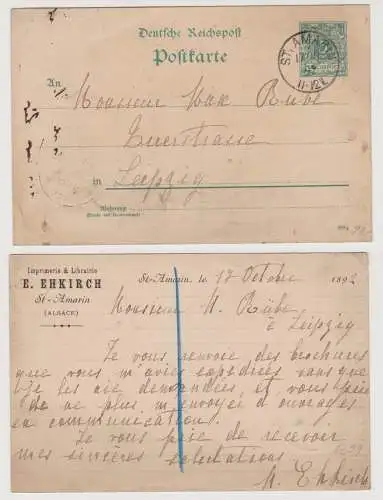 Deutsche Reichspost
Postkarte
ST. AMARIN
11-12
An
Monsieur Max Rübe
in Leipzig
Wohnung
Imprimerie & Librairie
E. EHKIRCH
St-Amarin
(ALSACE)
St-Amarin, le 17 Octobre 189
Monsieur M. Rübe
à Leipzig
Je vous renvoie des brochures
que vous m'aviez expédiées sans que
je les aie demandées et vous prie
de ne plus m'envoyer d'ouvrages
en communication.
Je vous prie de recevoir
mes sincères salutations
Ehkirch